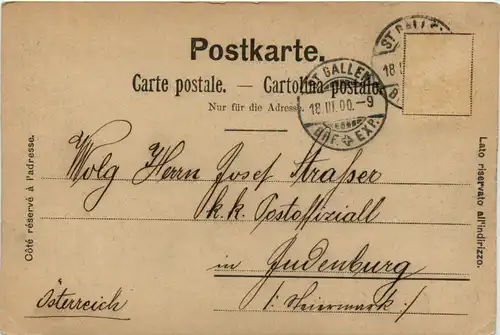 Postkarte.
Carte postale. — Cartolina postale.
Nur für die Adresse.
ST. GALLEN
18.III.00.-9
BRF. EXP.
ST. GALLEN
18
Côté réservé à l'adresse.
Lato riservato all'indirizzo.
Wolg Herrn Josef Straßer
k. k. Postoffiziall
in Judenburg
Österreich
/: Steiermark :/